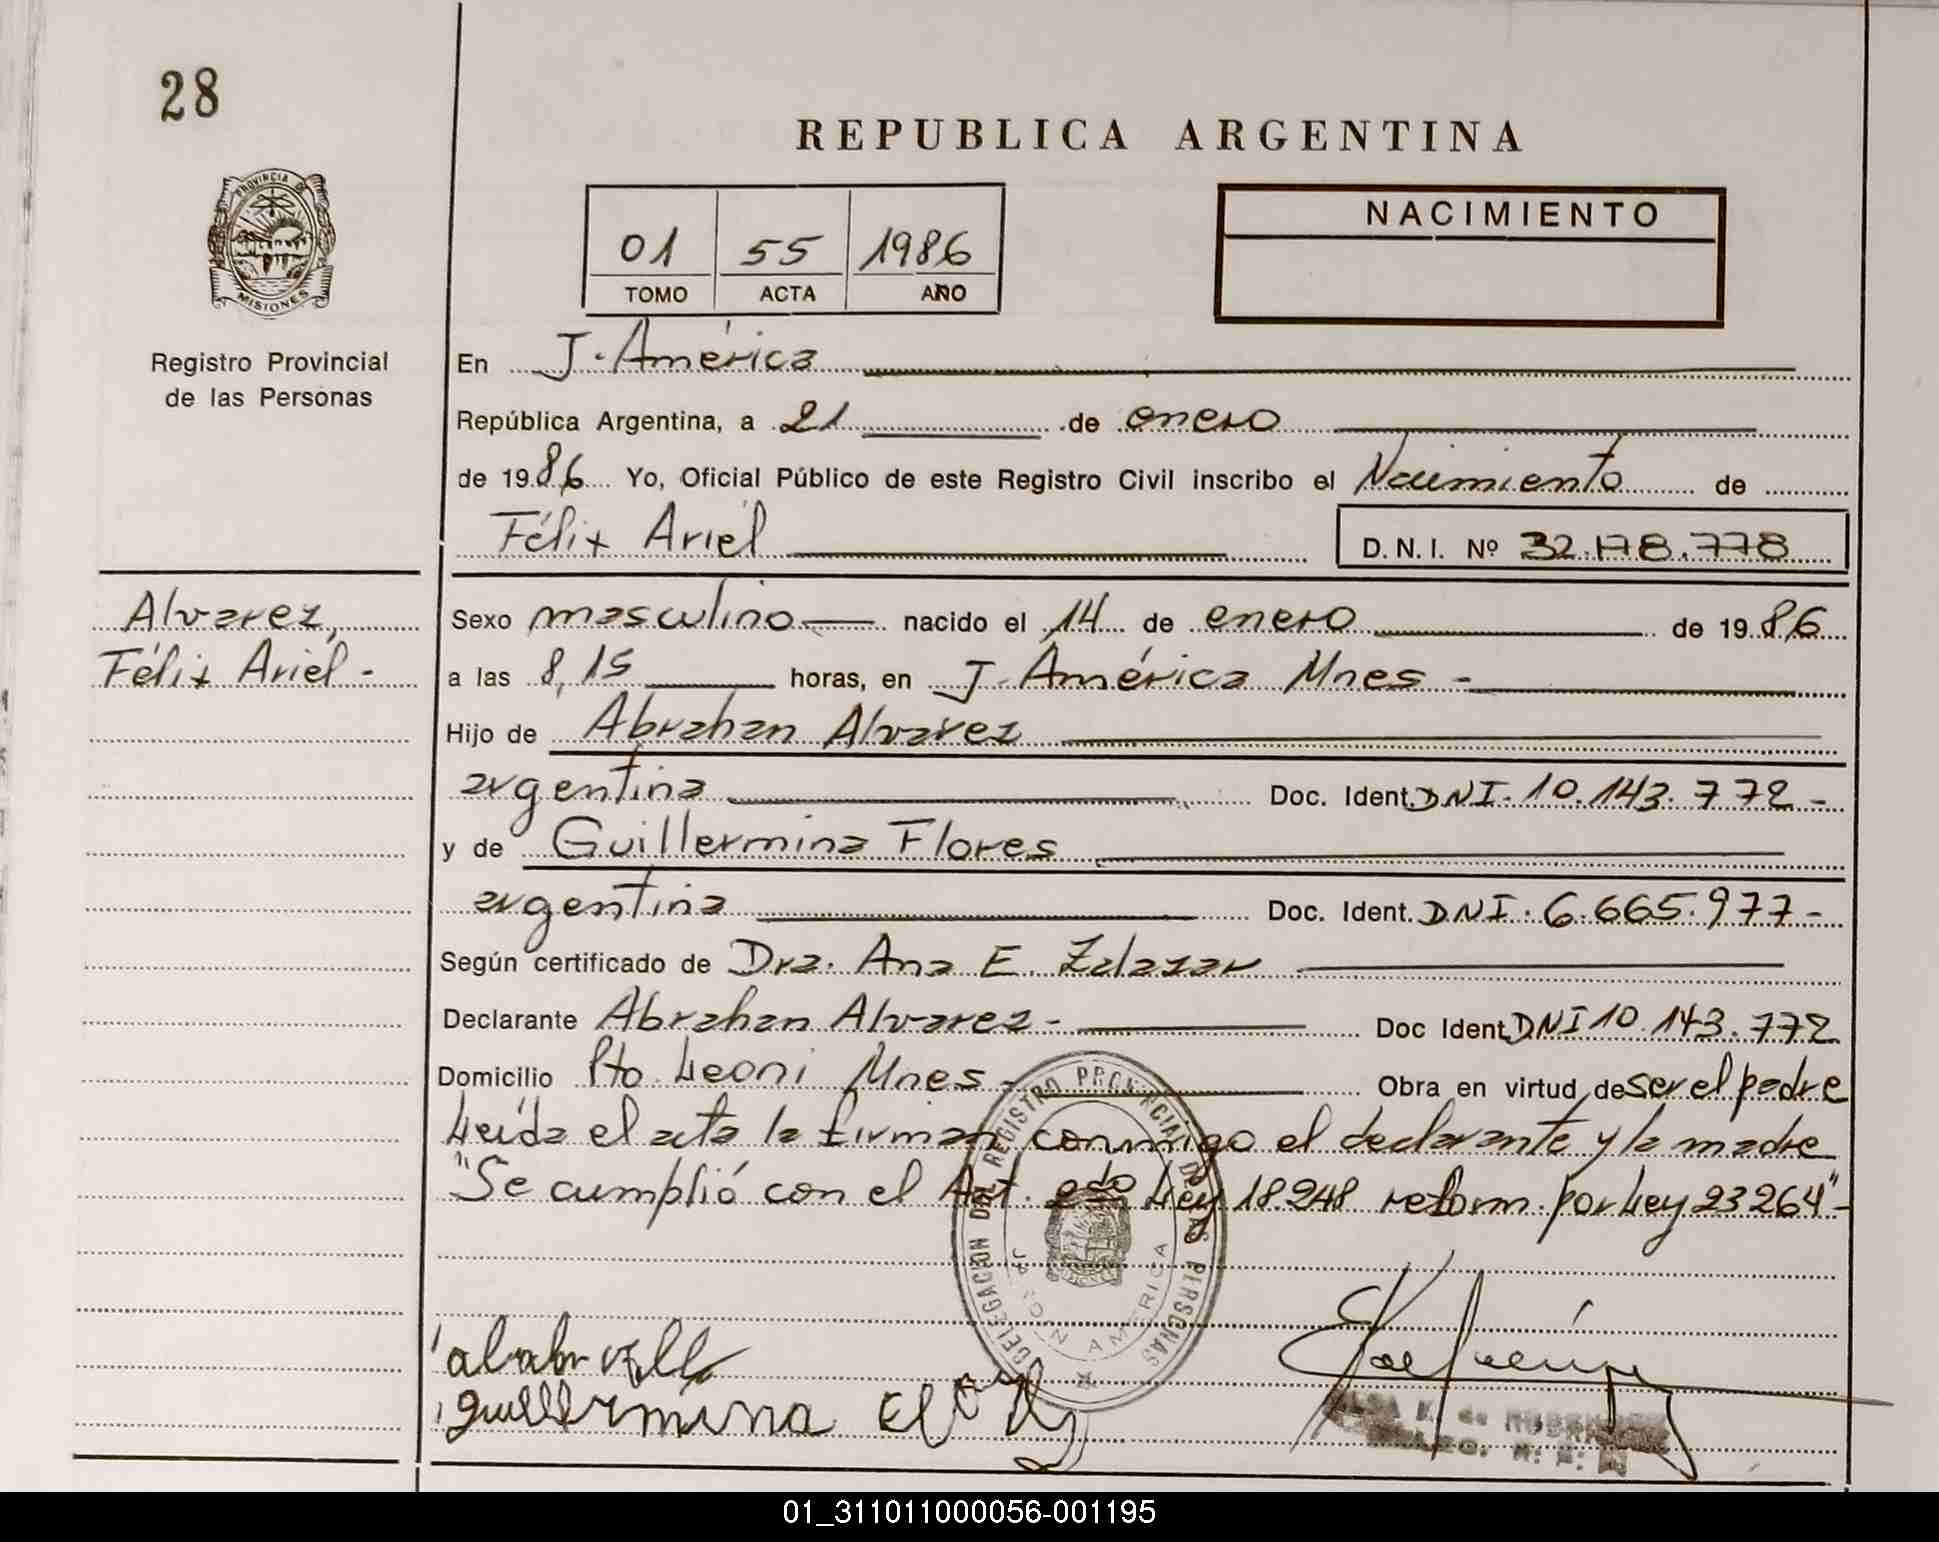 28
REPUBLICA ARGENTINA
PROVINCIA DE
MISIONES
Registro Provincial
de las Personas
01 55 1986
TOMO ACTA AÑO
NACIMIENTO
En J. América
República Argentina, a 21 de enero
de 1986 Yo, Oficial Público de este Registro Civil inscribo el Nacimiento de
Félix Ariel D.N.I. Nº 32.178.778
Alvarez,
Félix Ariel -
Sexo masculino nacido el 14 de enero de 1986
a las 8,15 horas, en J. América Mnes -
Hijo de Abrahan Alvarez
argentina Doc. Ident. DNI. 10.143.772 -
y de Guillermina Flores
argentina Doc. Ident. DNI. 6.665.977 -
Según certificado de Dra. Ana E. Zalazar
Declarante Abrahan Alvarez - Doc Ident. DNI 10.143.772
Domicilio Pto. Leoni Mnes - Obra en virtud de ser el padre
Leída el acta la firman conmigo el declarante y la madre
"Se cumplió con el Art. 2do Ley 18.248 reform. por Ley 23264" -
DELEGACION DEL REGISTRO PROVINCIAL DE LAS PERSONAS
JARDIN AMERICA
guillermina
01_311011000056-001195